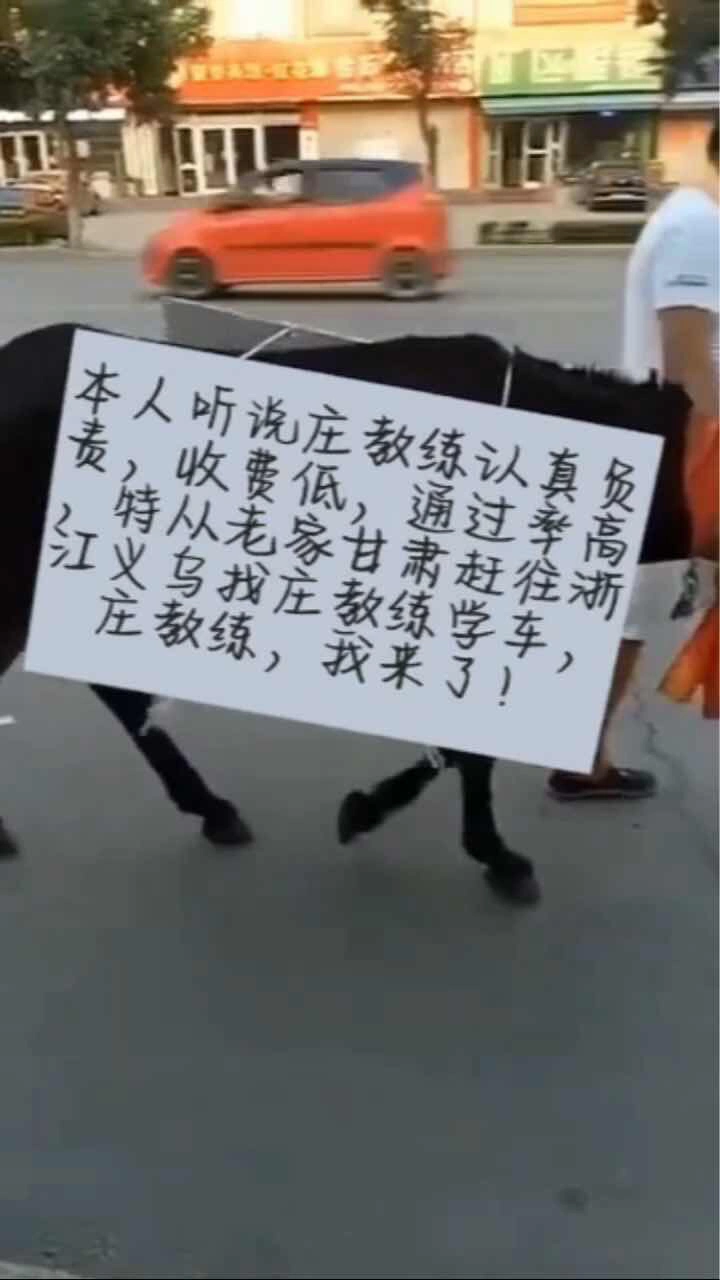 本人听说庄教练认真负
责，收费低，通过率高
，特从老家甘肃赶往浙
江义乌找庄教练学车，
庄教练，我来了！